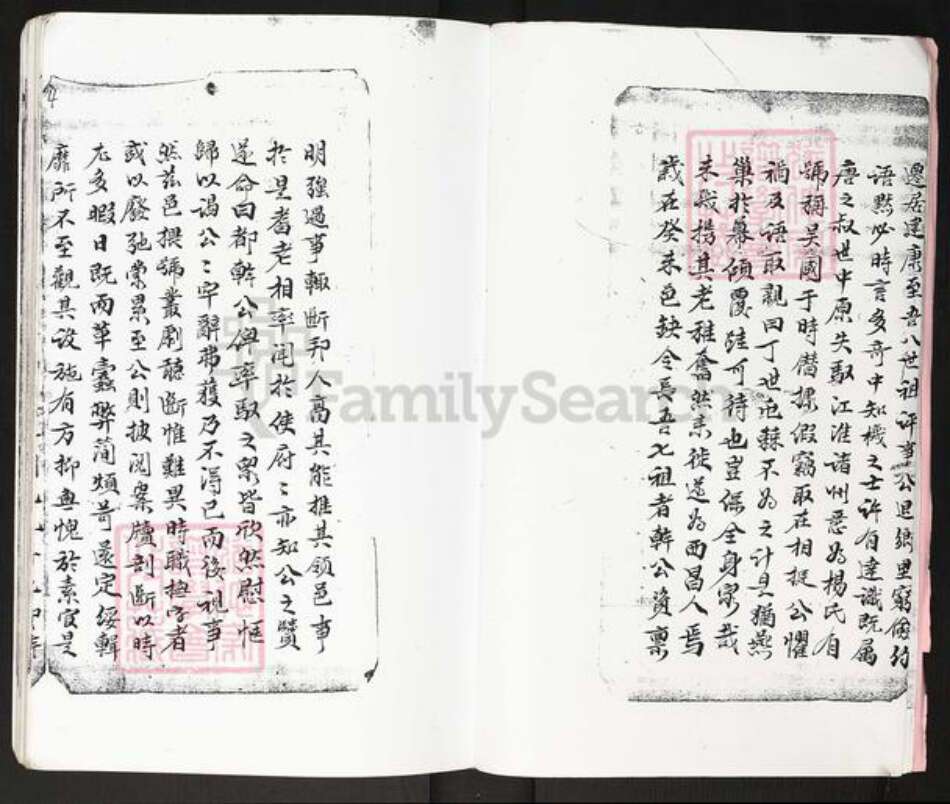 遷居建康至吾八世祖評事公退鄉里窮儉行
語默必時言多奇中知機之士許有達識既屬
唐之叔世中原失馭江淮諸州悉為楊氏有
號稱吳國于時僭據假竊取在相捉公懼
禍及語取親曰丁世危難不為之計是猶燕
巢於幕傾覆跬可待也豈保全身家哉
未幾揚其老稚奮然東徙遂為西昌人焉
歲在癸未邑缺令長吾七祖者幹公資稟
明強過事輒斷邦人高其能推其領邑事
於是耆老相率聞於使府〻亦知公之賢
遂命曰都幹公俾率馭之眾皆欣然慰愜
歸以謁公〻牢辭弗獲乃不得已而後視事
然茲邑撰號叢劇聽斷惟難異時職撫字者
或以廢弛常累至公則披閱案牘剖斷以時
尤多暇日既而革蠹弊簡煩苛遂定綏輯
靡所不至觀其設施有方抑無愧於素宦是
FamilySearch